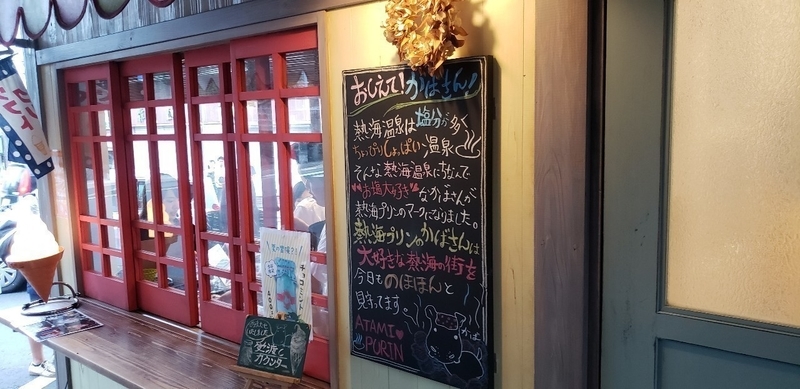 おしえて!かばさん!
熱海温泉は塩分が多く
ちょっぴりしょっぱい温泉
そんな熱海温泉にちなんで
お塩大好きなかばさんが
熱海プリンのマークになりました。
熱海プリンのかばさんは
大好きな熱海の街を
今日ものほほんと
見守ってます。
ATAMI
PURIN
かば
チョコミント
受渡し
カウンター